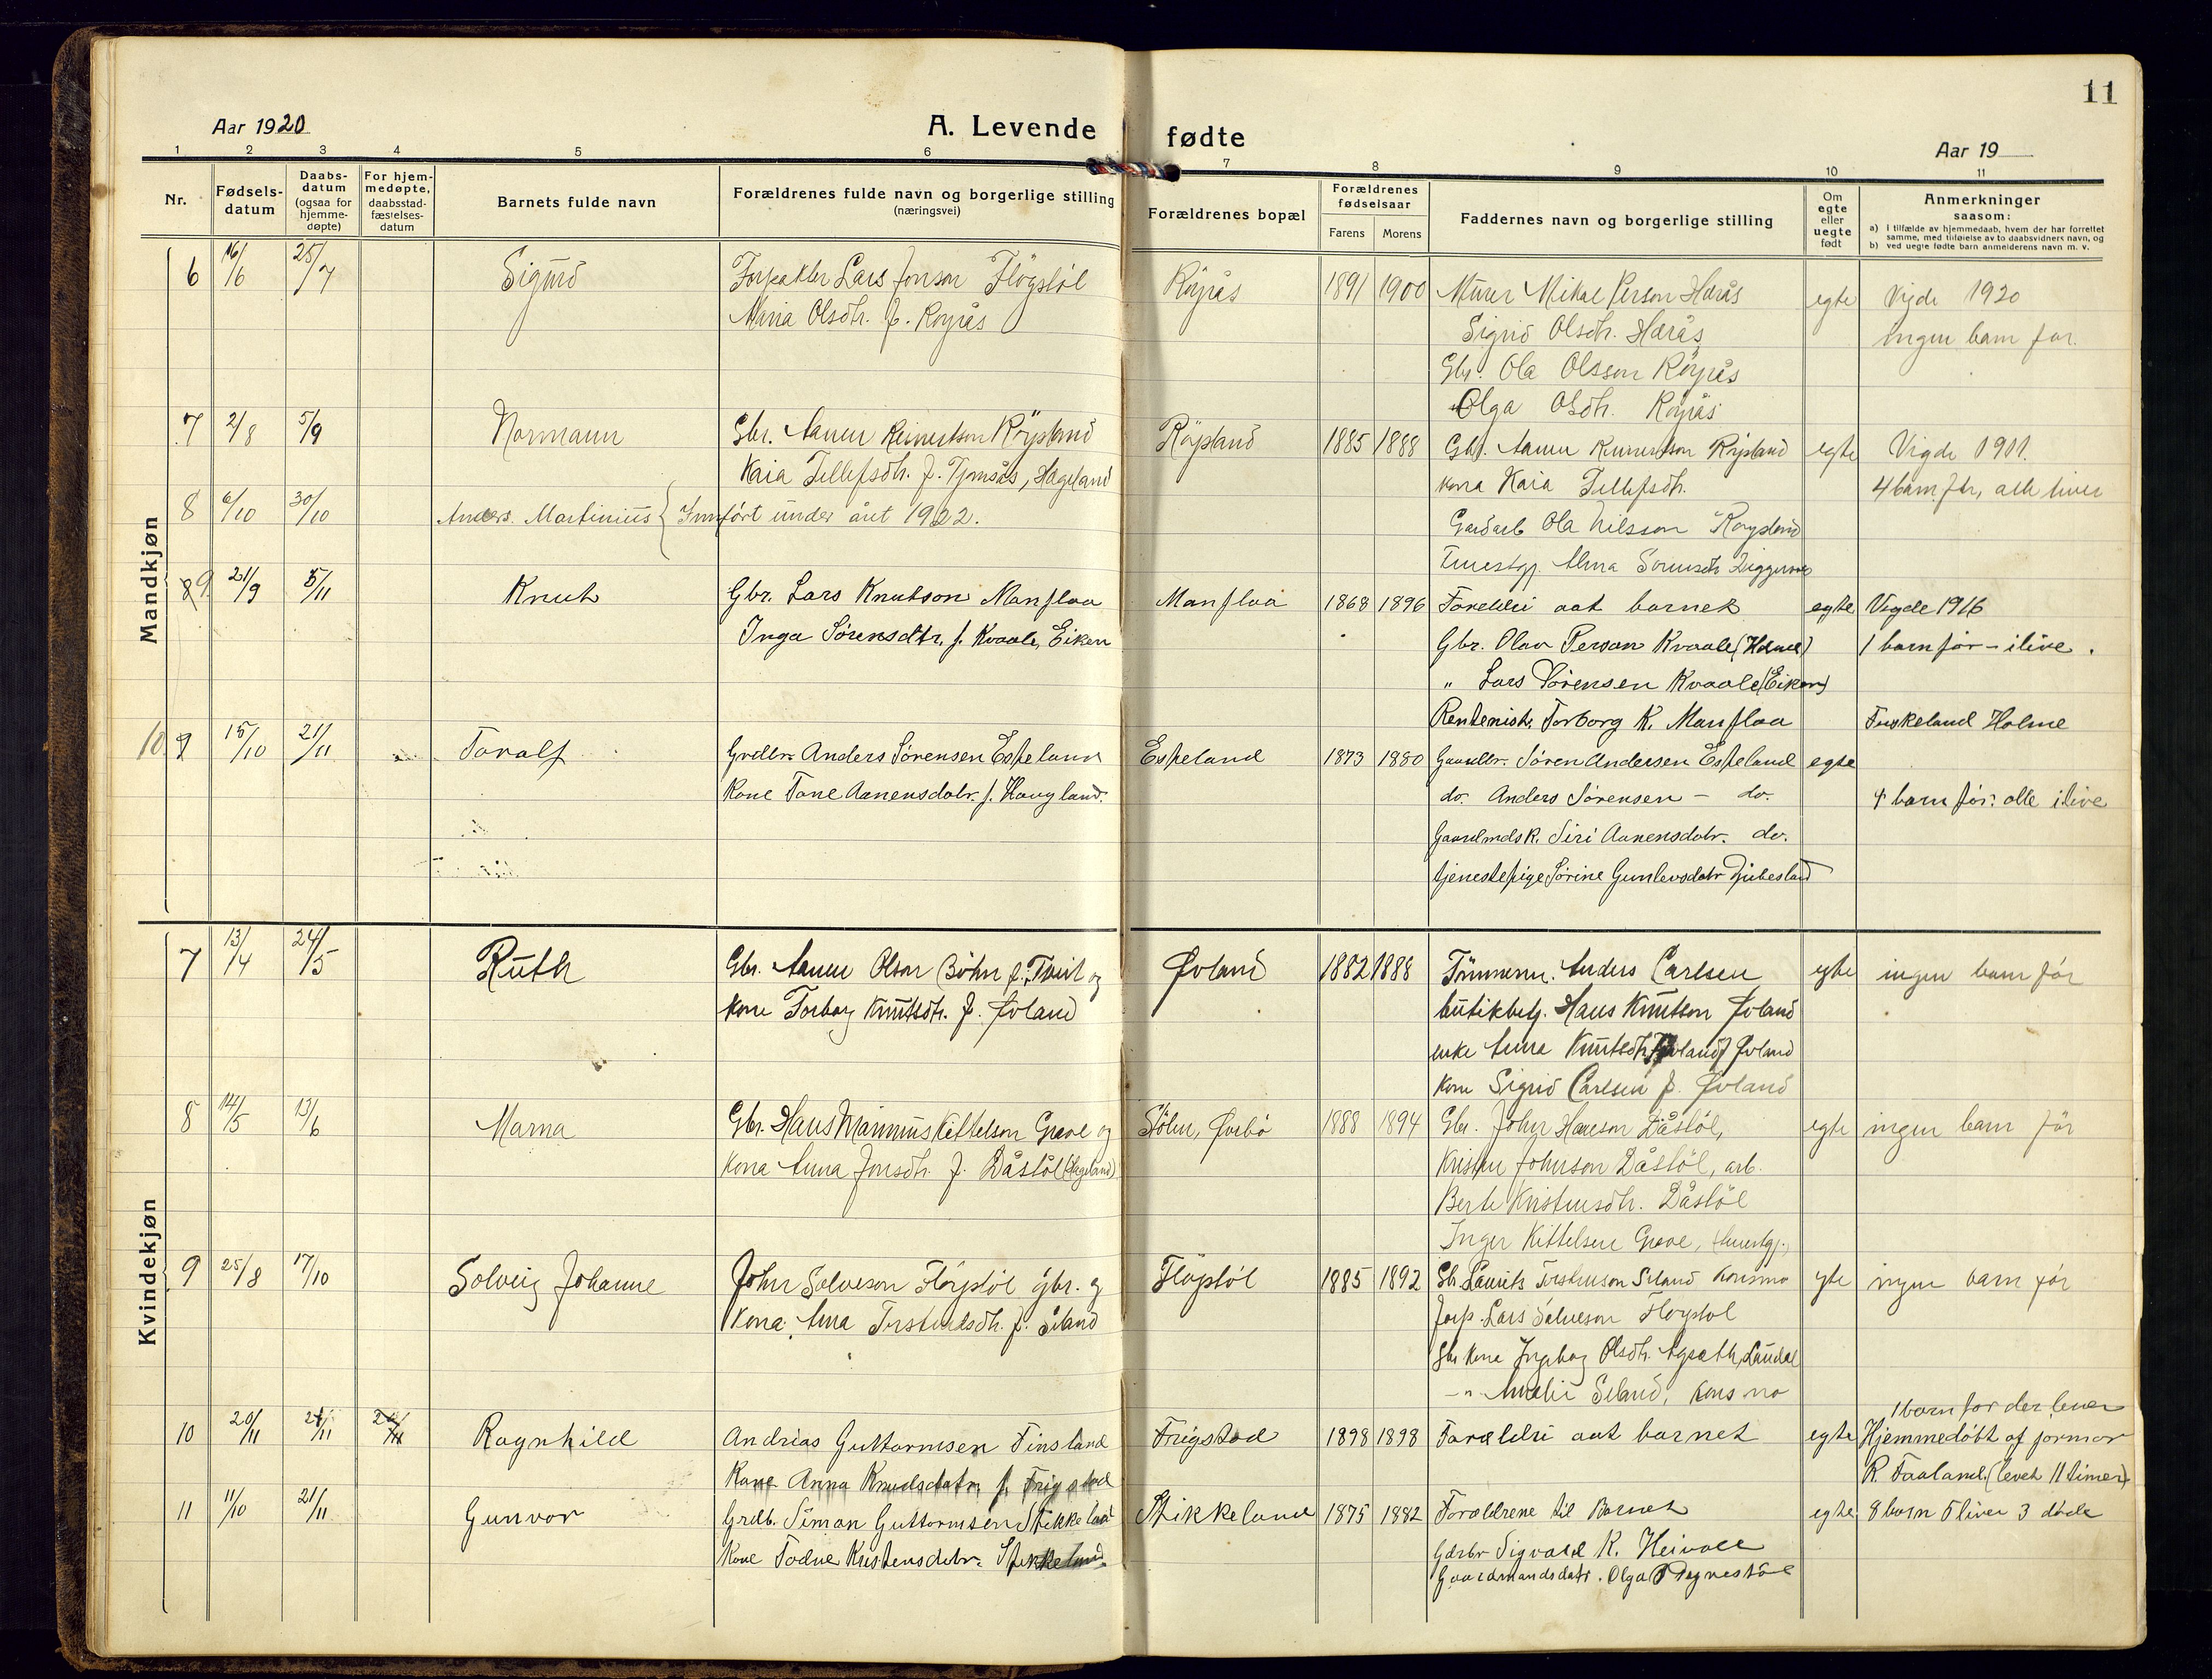 11
Aar 1920
A. Levende fødte
Aar 19
1 2 3 4 5 6 7 8 9 10 11
Nr.
Fødselsdatum
Daabsdatum (ogsaa for hjemmedøpte)
For hjemmedøpte, daabsstadfæstelsesdatum
Barnets fulde navn
Forældrenes fulde navn og borgerlige stilling (næringsvei)
Forældrenes bopæl
Forældrenes fødselsaar
Farens Morens
Faddernes navn og borgerlige stilling
Om egte eller uegte født
Anmerkninger
saasom:
a) i tilfælde av hjemmedaab, hvem der har forrettet samme, med tilføielse av to daabsvidners navn, og
b) ved uegte fødte barn anmelderens navn m. v.
Mandkjøn
6 16/6 25/7 Sigurd Forpakter Lars Jonson Fløgstøl Røyrås 1891 1900 Murer Mikal Person Harås egte Vigde 1920
Maria Olsdtr. f. Røyrås Sigrid Olsdtr. Harås ingen barn før.
Gbr. Ola Olsson Røyrås
Olga Olsdtr. Røyrås
7 2/8 5/9 Normann Gbr. Aanen Reinertson Røysland Røysland 1885 1888 Gbr. Aanen Reinertson Røysland egte Vigde 1911.
Kaia Tellefsdtr. f. Tjomsås, Hægeland kona Kaia Tellefsdtr. 4 barn før, alle liver
8 6/10 30/10 Anders Martinius Innført under året 1922. Gardarb Ola Nilsson Røysland
Alma
89 21/9 5/11 Knut Gbr. Lars Knutson Manflaa Manflaa 1868 1896 Foreldri aat barnet egte Vigde 1916
Inga Sørensdtr. f. Kvaale, Eiken Gbr. Olav Person Kvaale (Holme) 1 barn før - ilive.
" Lars Sørensen Kvaale (Eiken)
Rentenist. Torborg K. Manflaa Tuskeland Holme
10 9 15/10 21/11 Toralf Grdbr. Anders Sørensen Espeland Espeland 1873 1880 Gaardbr. Søren Andersen Espeland egte
Kone Tone Aanensdatr. f. Haugland. do. Anders Sørensen - do. 4 barn før: alle ilive
Gaardmdsk. Siri Aanensdatr. do.
tjenestepige Sørine Gunlevsdatr Djubesland
Kvindekjøn
7 13/4 24/5 Ruth Gbr. Aanen Olson Bøhn f. Tveit og Øvland 1882 1888 Tømmerm. Anders Carlsen egte ingen barn før
kone Torborg Knutsdtr. f. Øvland butikbetj. Hans Knutson Øvland
enke Anna Knutsdtr Øvland
kone Sigrid Carlsen f. Øvland
8 14/5 13/6 Marna Gbr. Hans Marinius Kittelson Greve og Stølen, Øvebø 1888 1894 Gbr. John Hanson Dåstøl, egte ingen barn før
kona Anna Jonsdtr. f. Dåstøl (Hægeland) Kristen Johnson Dåstøl, arb.
Berte Kristensdtr. Dåstøl
Inger Kittelsen Greve,
9 25/8 17/10 Solveig Johanne John Salveson Fløystøl gbr. og Fløystøl 1885 1892 Gbr. Laurits Torstenson Seland Konsmo egte ingen barn før
kona Anna Torstensdtr. f. Seland forp. Lars Salveson Fløystøl
Gbr kona Ingeborg Olsdtr. Laudal
-"- Amalie Seland, Konsmo
10 20/11 21/11 Ragnhild Andrias Guttormsen Finsland Frigstad 1898 1898 Foreldri aat barnet egte 1 barn før der lever
Kone Anna Knudsdatr. f. Frigstad Hjemmedøbt af jormor
R. Faaland. (levet 11 timer)
11 11/10 21/11 Gunvor Grdb. Simon Guttormsen Stikkeland Stikkeland 1875 1882 Forældrene til Barnet egte 8 barn 5 liver 3 døde
Kone Todne Kristensdatr. Stikkeland. Gdrbr Sigvald K. Heivoll
Gaardmandsdatr. Olga